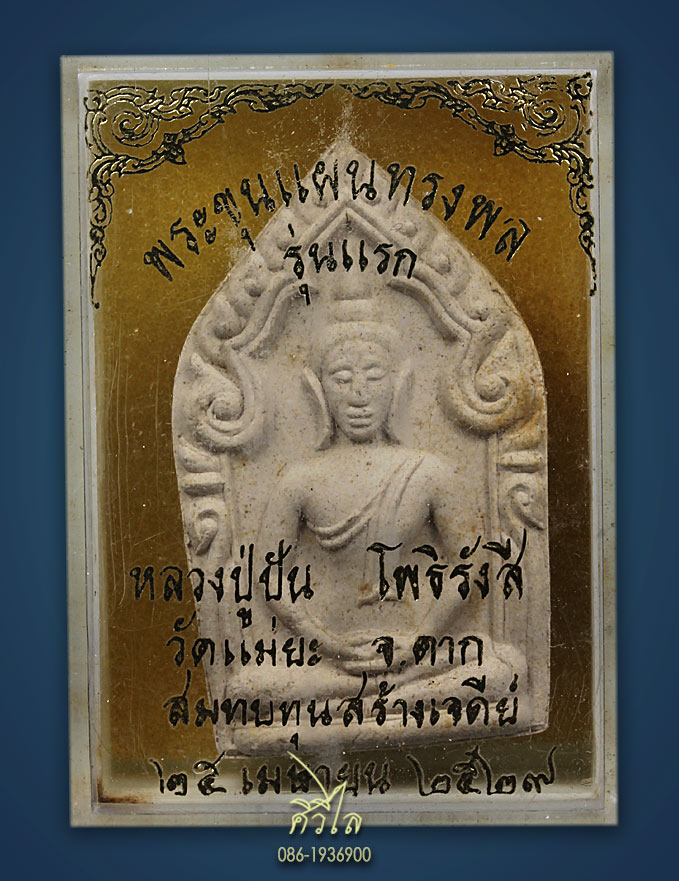 พระขุนแผนทรงพล
รุ่นแรก
หลวงปู่ปัน โพธิรังสี
วัดแม่ยะ จ.ตาก
สมทบทุนสร้างเจดีย์
๒๕ เมษายน ๒๕๒๗
ศิวิไล
086-1936900